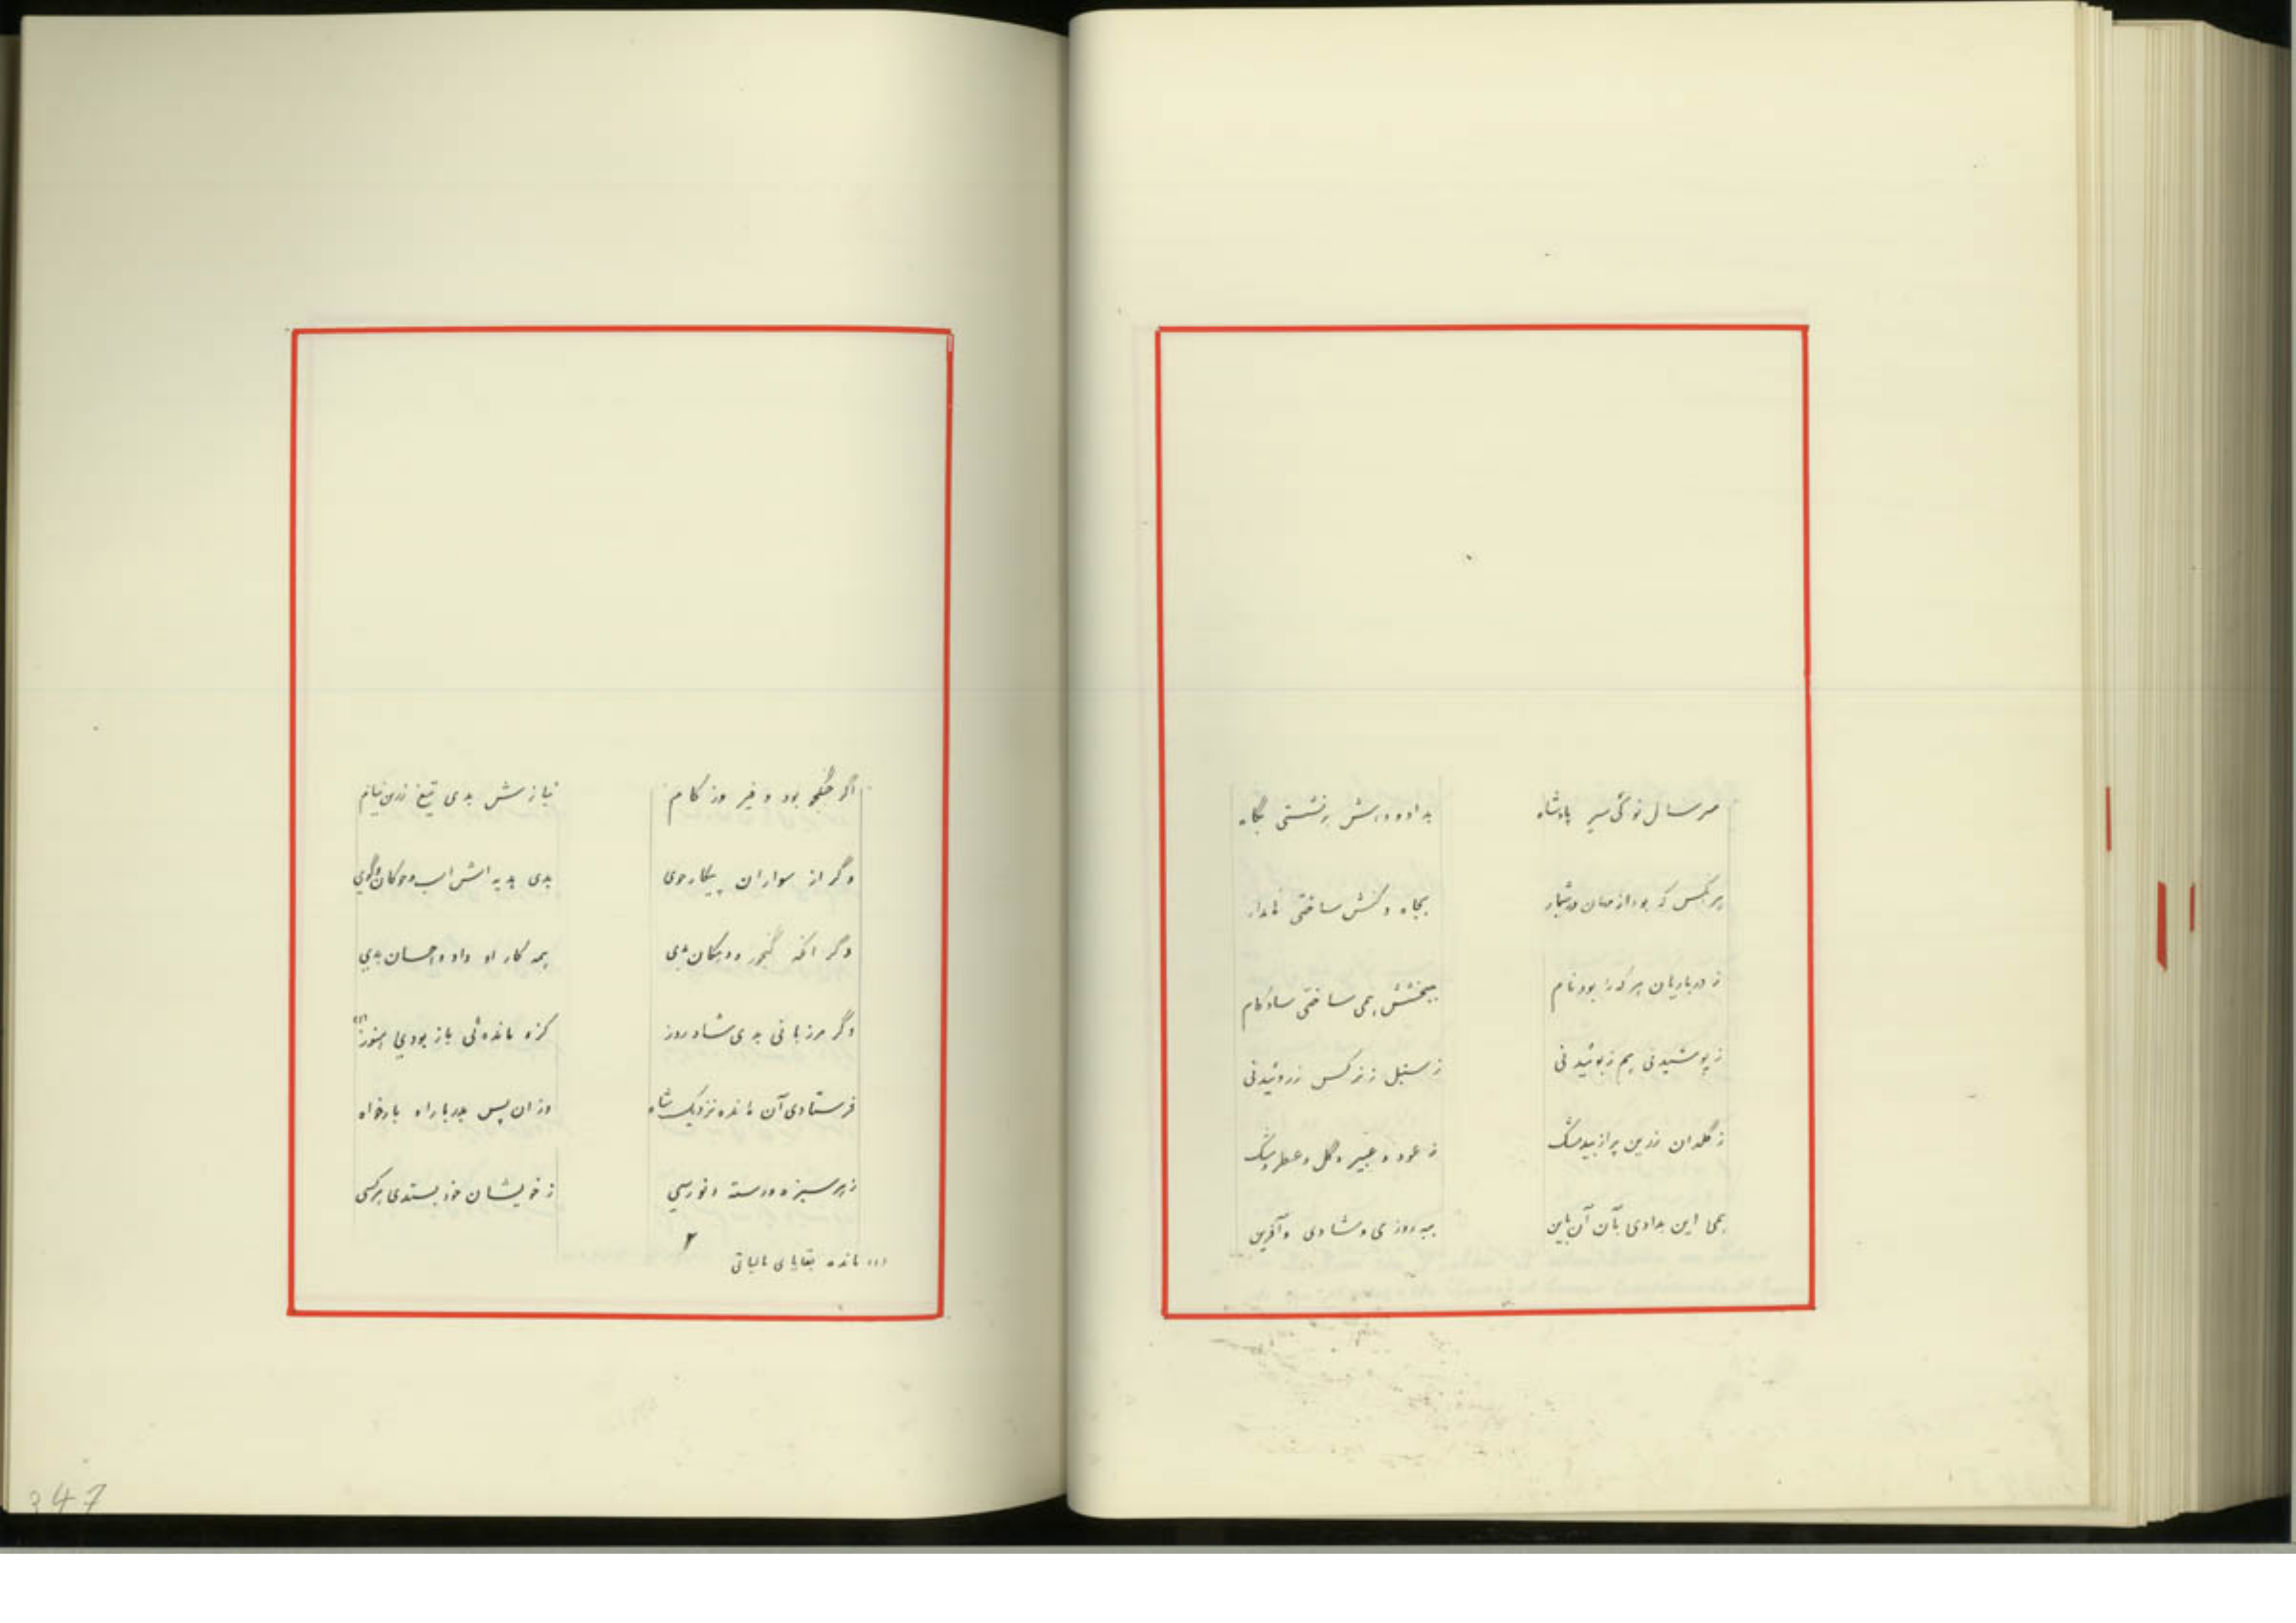 سر سال نو کی سر پادشاه    بداد و دهش بر نشستی بگاه
هر آنکس که بود از مهان در شمار    بجاه و کنش ساختی نامدار
ز درباریان هر که را بود نام    ببخشش همی ساختی شادکام
ز پوشیدنی هم ز بوئیدنی    ز سنبل ز نرگس ز روئیدنی
ز گلدان زرین پر از بیدمشک    ز عود و عبیر و گل و عطر و مشک
همی این بدادی بآن آن باین    به روزی و شادی و آفرین
اگر جنگجو بود و فیروز کام    نیازش بدی تیغ زرین نیام
وگر از سواران پیکارجوی    بدی هدیه اش اسب و چوکان و گوی
وگر آنکه گنجور و دهکان بدی    همه کار او داد و احسان بدی
وگر مرزبانی بدی شاد روز    کزو مانده ئی باز بودی هنوز (۱)
فرستادی آن مانده نزدیک شاه    وزان پس بدربار او بارخواه
ز هر سبزه و دسته و نورسی    ز خویشان خود بستدی هر کسی
(۱) مانده بقایای مالیاتی
۲
347